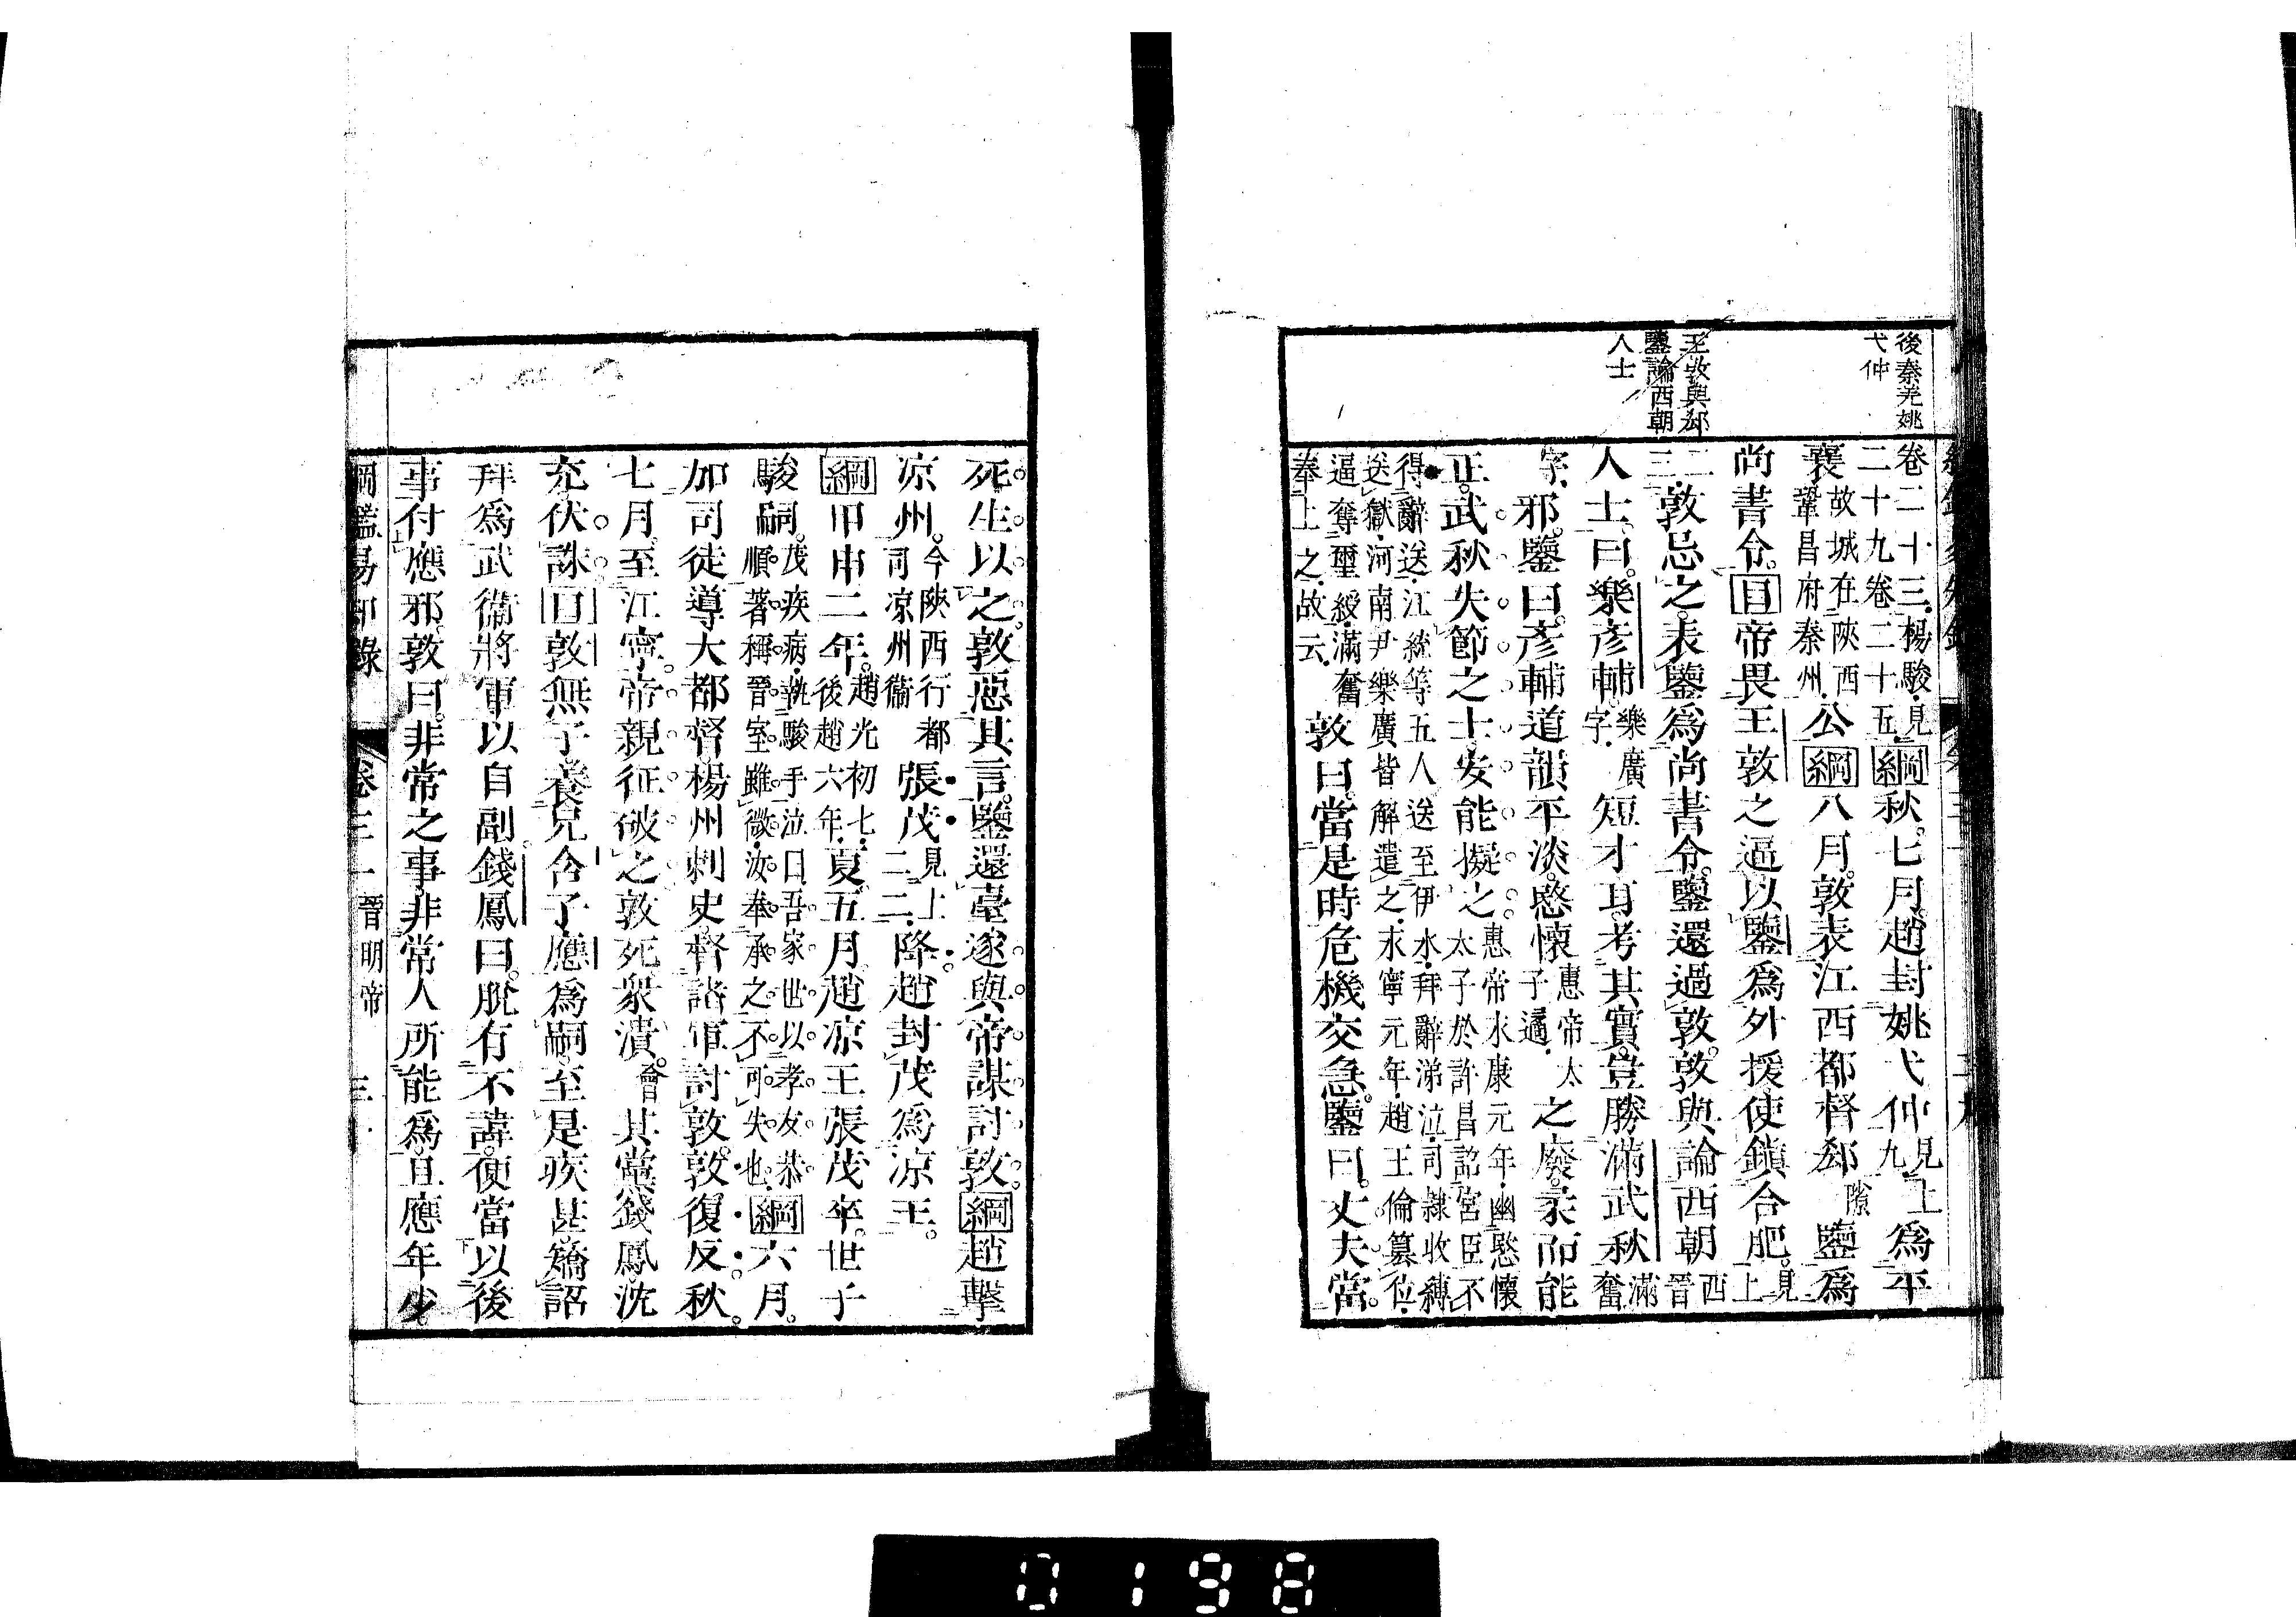 後秦羌姚
弋仲
王敦與郗
鑒論西朝
人士
卷二十三楊駿見二十九卷二十五綱秋七月趙封姚弋仲見上九為平
襄故城在陝西鞏昌府秦州公綱八月敦表江西都督郗隙鑒為
尚書令目帝畏王敦之逼以鑒為外援使鎮合肥見上
二三敦忌之表鑒為尚書令鑒還過敦敦與論西朝西晉
人士曰樂彥輔樂廣字短才耳考其實豈勝滿武秋滿奮
字邪鑒曰彥輔道韻平淡愍懷惠帝太子遹之廢柔而能
正武秋失節之士安能擬之惠帝永康元年幽愍懷太子於許昌詔宮臣不
得辭送江統等五人送至伊水拜辭涕泣司隸收縛
送獄河南尹樂廣皆解遣之永寧元年趙王倫篡位
逼奪璽綬滿奮奉上之故云敦曰當是時危機交急鑒曰丈夫當
死生以之敦惡其言鑒還臺遂與帝謀討敦綱趙擊
凉州今陝西行都司凉州衞張茂見上二二降趙封茂為凉王
綱甲申二年趙光初七後趙六年夏五月趙凉王張茂卒世子
駿嗣茂疾病執駿手泣曰吾家世以孝友恭順著稱晉室雖微汝奉承之不可失也綱六月
加司徒導大都督楊州刺史督諸軍討敦敦復反秋
七月至江寧帝親征破之敦死衆潰會其黨錢鳳沈
充伏誅目敦無子養兄含子應為嗣至是疾甚矯詔
拜為武衞將軍以自副錢鳳曰脫有不諱便當以後
事付應邪敦曰非常之事非常人所能為且應年少
綱鑑易知錄 卷三一 晉明帝